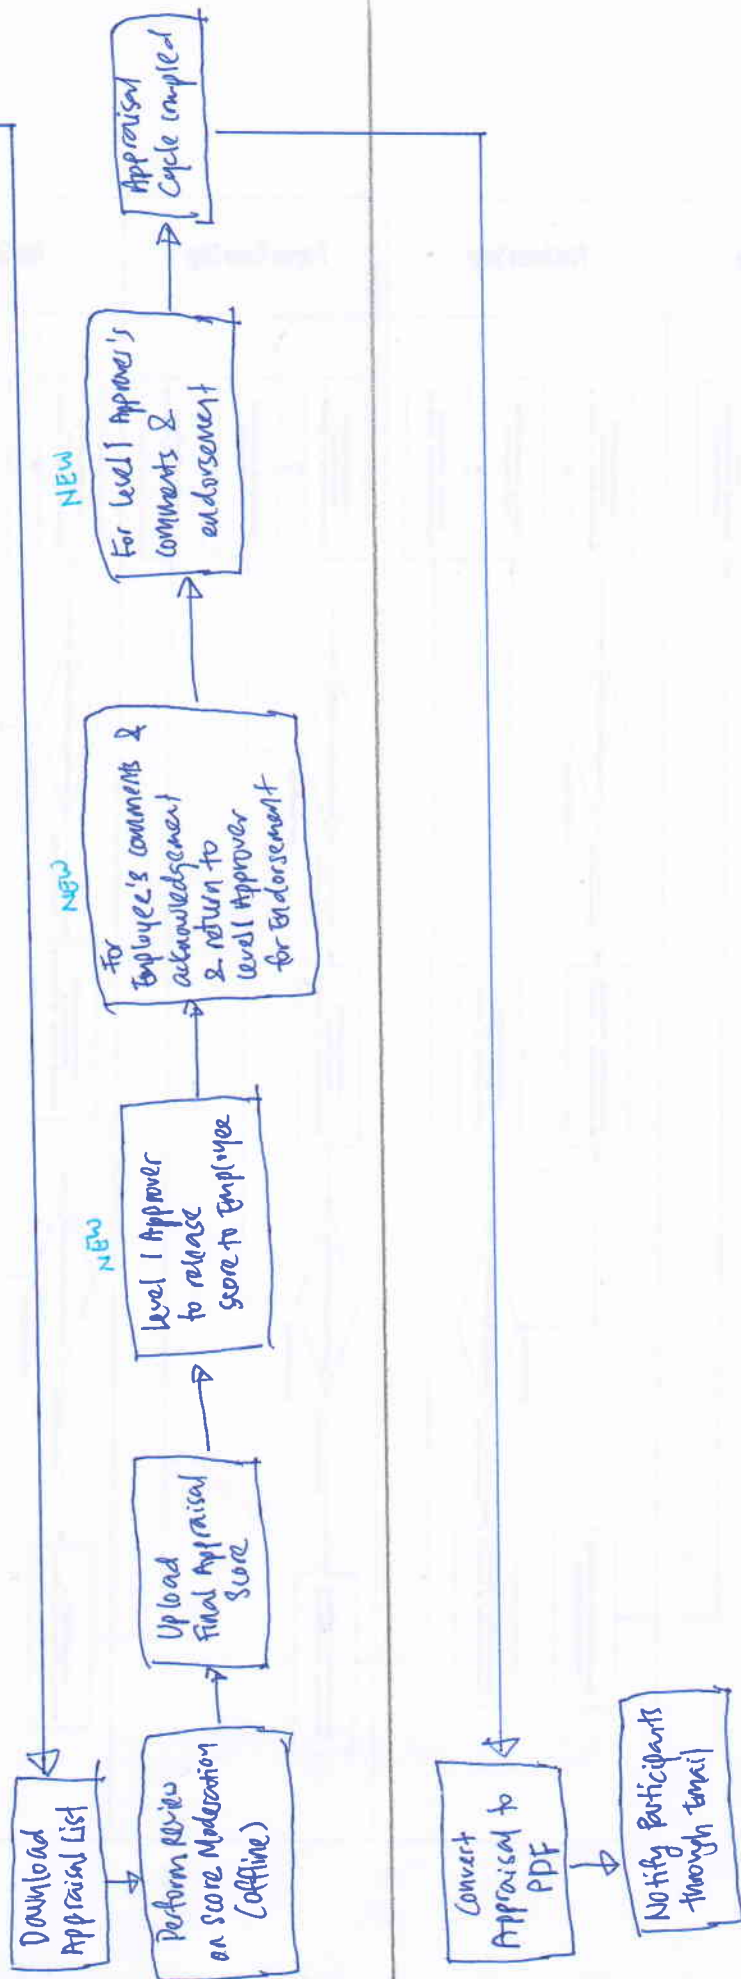 Download
Appraisal List
Perform Review
on Score Moderation
(offline)
Upload
Final Appraisal
Score
NEW
Level 1 Approver
to release
score to Employee
NEW
For
Employee's comments &
acknowledgement
& return to
Level 1 Approver
for Endorsement
NEW
For Level 1 Approver's
comments &
endorsement
Appraisal
Cycle completed
Convert
Appraisal to
PDF
Notify Participants
through Email